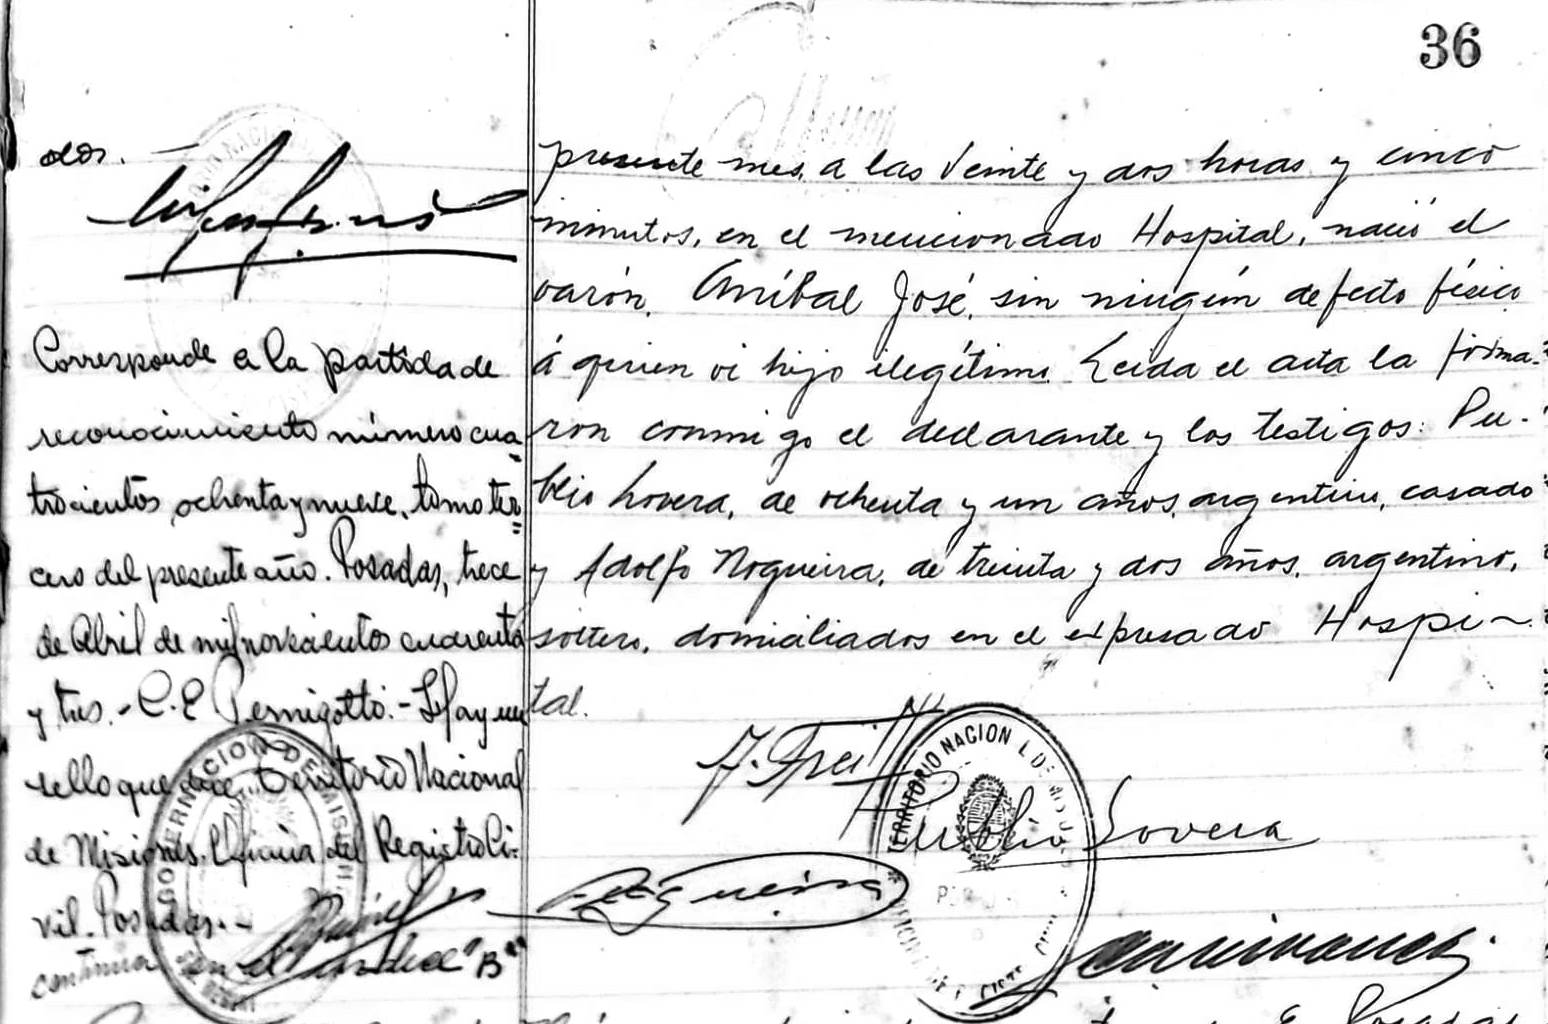 36
dos.
Corresponde a la partida de
reconocimiento número cua-
trocientos ochenta y nueve, tomo ter-
cero del presente año. Posadas, trece
de Abril de mil novecientos cuarenta
y tres.- C. E. Pernigotti.- Hay un
sello que dice: Territorio Nacional
de Misiones. Oficina del Registro Ci-
vil. Posadas.-
continua en el indice "B"
GOBERNACION DE MISIONES
presente mes, a las veinte y dos horas y cinco
minutos, en el mencionado Hospital, nació el
varón, Aníbal José, sin ningún defecto físico
á quien vi hijo ilegítimo. Leida el acta la firma-
ron conmigo el declarante y los testigos: Pu-
blio Lovera, de ochenta y un años, argentino, casado
y Adolfo Nogueira, de treinta y dos años, argentino,
soltero, domiciliados en el expresado Hospi-
tal.
Publio Lovera
TERRITORIO NACION L DE